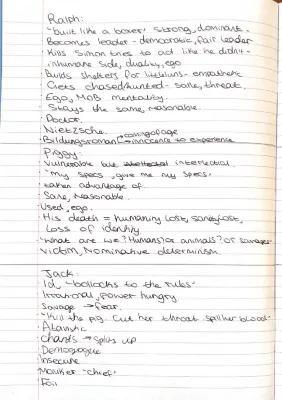 Ralph:
"built like a boxer" strong, dominant.
Becomes leader - democratic, fair leader
Kills Simon tries to act like he didn't -
inhumane side, duality, ego
Builds shelters for littluns - empathetic
Gets chased/hunted - sane, threat.
Ego, MOB mentality.
Stays the same, reasonable.
Doctor.
Nietzsche.
Bildungsroman → coming of age
innocence to experience
Piggy:
Vulnerable but intellectual.
"my specs, give me my specs"
taken advantage of.
Sane, Reasonable.
Used, ego.
His death = humanity lost, sanity lost,
Loss of identity
"What are we? Humans? or animals? or savages"
Victim, Nominative determinism.
Jack:
Id, "bollocks to the rules"
Irrational, power hungry.
Savage → fear.
"Kill the pig. Cut her throat. Spill her blood"
Atavistic
chants → splits up
Demagogue
Insecure
Moniker "chief"
Foil